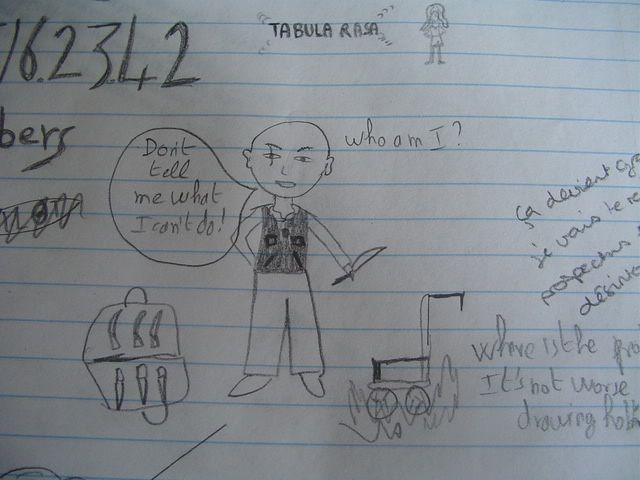 16.23.42
TABULA RASA
bers
Don't
tell
me what
I can't do!
who am I?
ça devient
je vais le
where is the
It's not worse
drawing